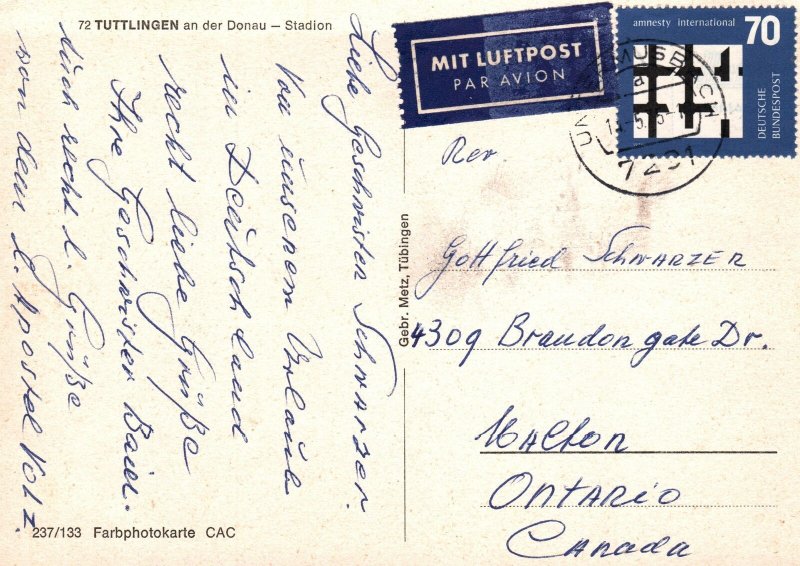 72 TUTTLINGEN an der Donau – Stadion
Liebe Geschwister Schwarzer.
Von unserem Urlaub
in Deutschland
recht liebe Grüße
Ihre Geschwister Baier.
Auch recht l. Grüße
von dem l. Apostel Volz.
237/133 Farbphotokarte CAC
Gebr. Metz, Tübingen
MIT LUFTPOST
PAR AVION
amnesty international 70
DEUTSCHE
BUNDESPOST
7201
Rev.
Gottfried SCHWARZER
4309 Braudongate Dr.
Malton
ONTARIO
Canada